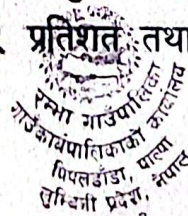 प्रतिशत तथा
रम्भा गाउँपालिका
गाउँ कार्यपालिकाको कार्यालय
पिपलडाँडा, पाल्पा
लुम्बिनी प्रदेश, नेपाल